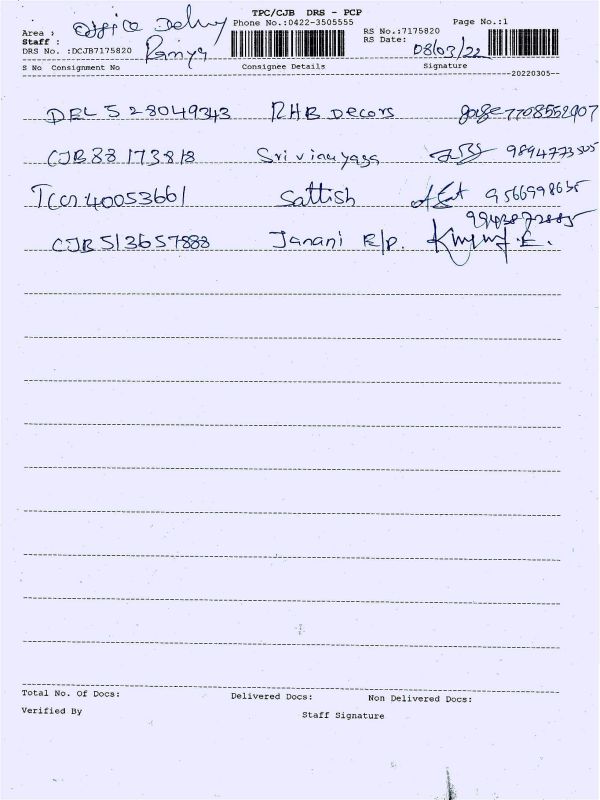 TPC/CJB DRS - PCP
Area : Office Delivy Phone No.:0422-3505555 Page No.:1
Staff : Ramya RS No.:7175820
DRS No. :DCJB7175820 RS Date: 08/03/22
S No Consignment No Consignee Details Signature
20220305
DEL 528049343 RHB Decors 7708552907
CJB 88173818 Sri vinayaga
TCCN 40053661 Sattish 9566998635
CJB 513657888 Janani E/p.
Total No. Of Docs: Delivered Docs: Non Delivered Docs:
Verified By Staff Signature